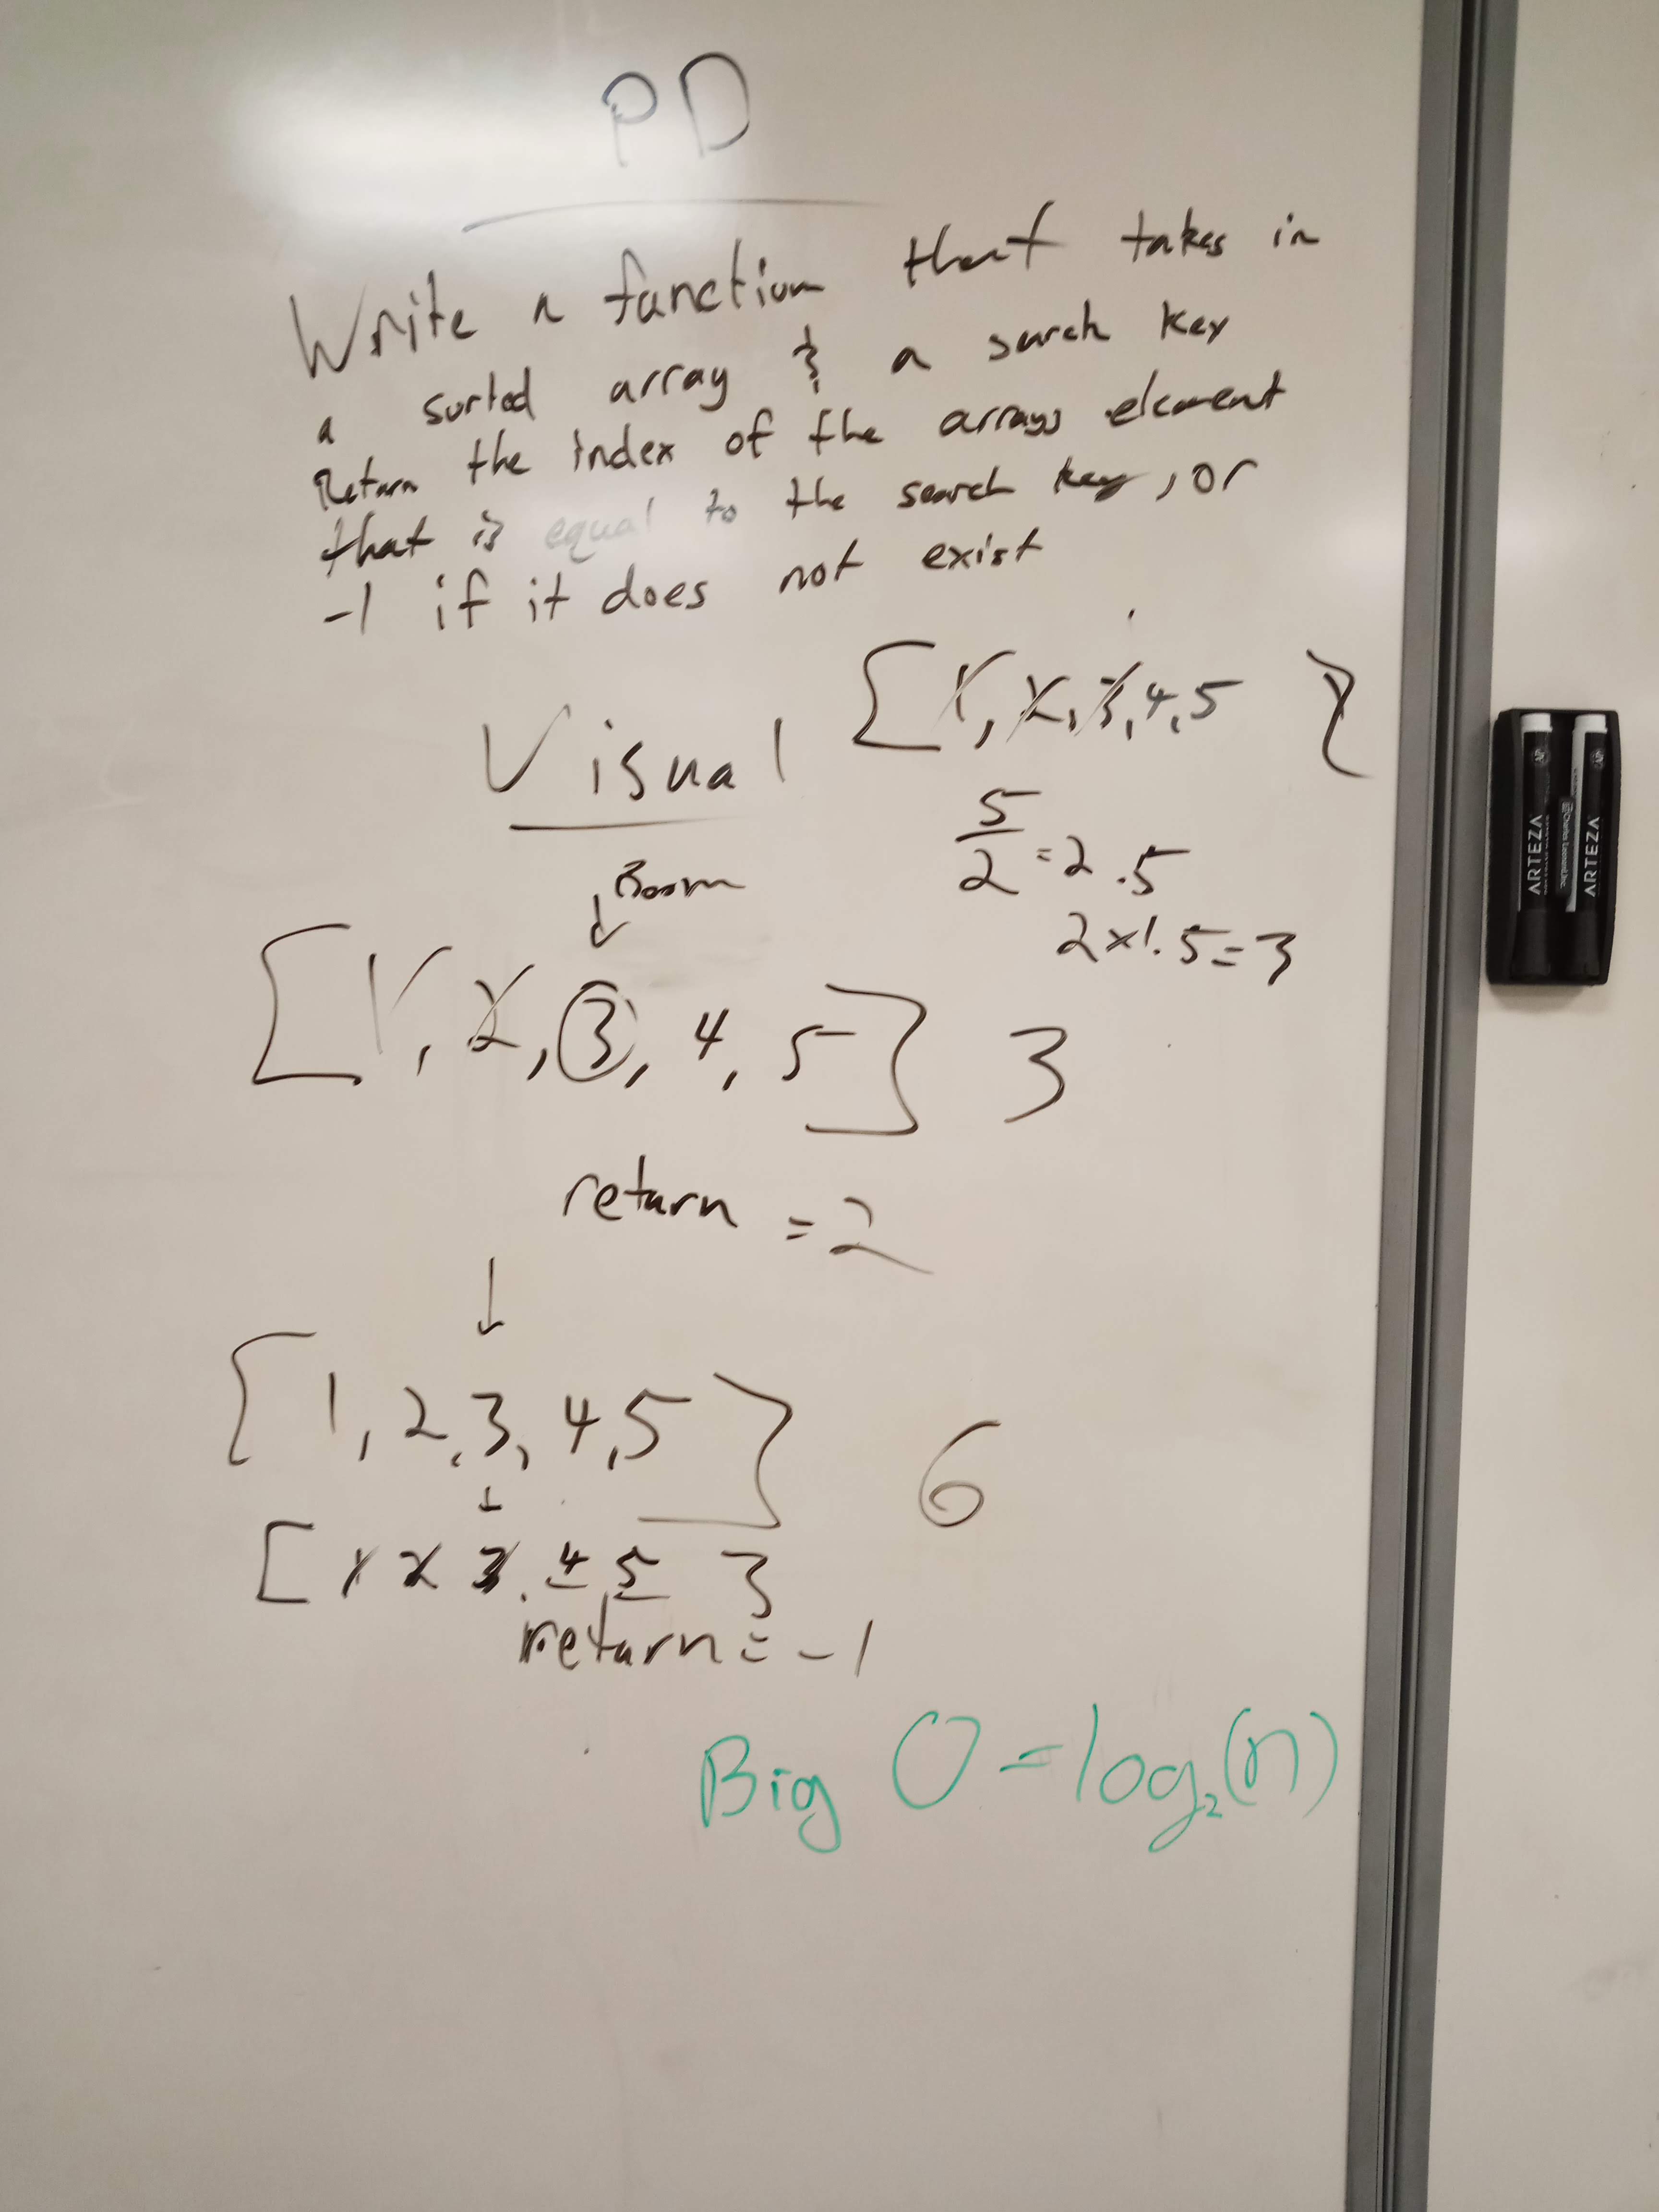 PD
Write a function that takes in
a sorted array & a search key
Return the index of the arrays element
that is equal to the search key, or
-1 if it does not exist
Visual
[1, 2, 3, 4, 5]
5/2 = 2.5
2 x 1.5 = 3
Boom
[1, 2, 3, 4, 5] 3
return = 2
[1, 2, 3, 4, 5] 6
[1 2 3, 4, 5 3
return = -1
Big O = log₂(n)
ARTEZA
ARTEZA